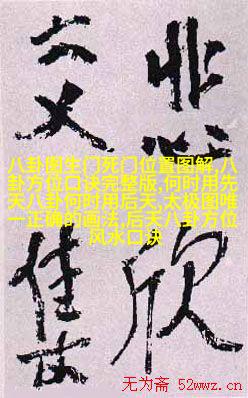 悲欣
交集
八卦图生门死门位置图解,八
卦方位口诀完整版,何时用先
天八卦何时用后天,太极图唯
一正确的画法,后天八卦方位
风水口诀
无为斋 52wwz.cn